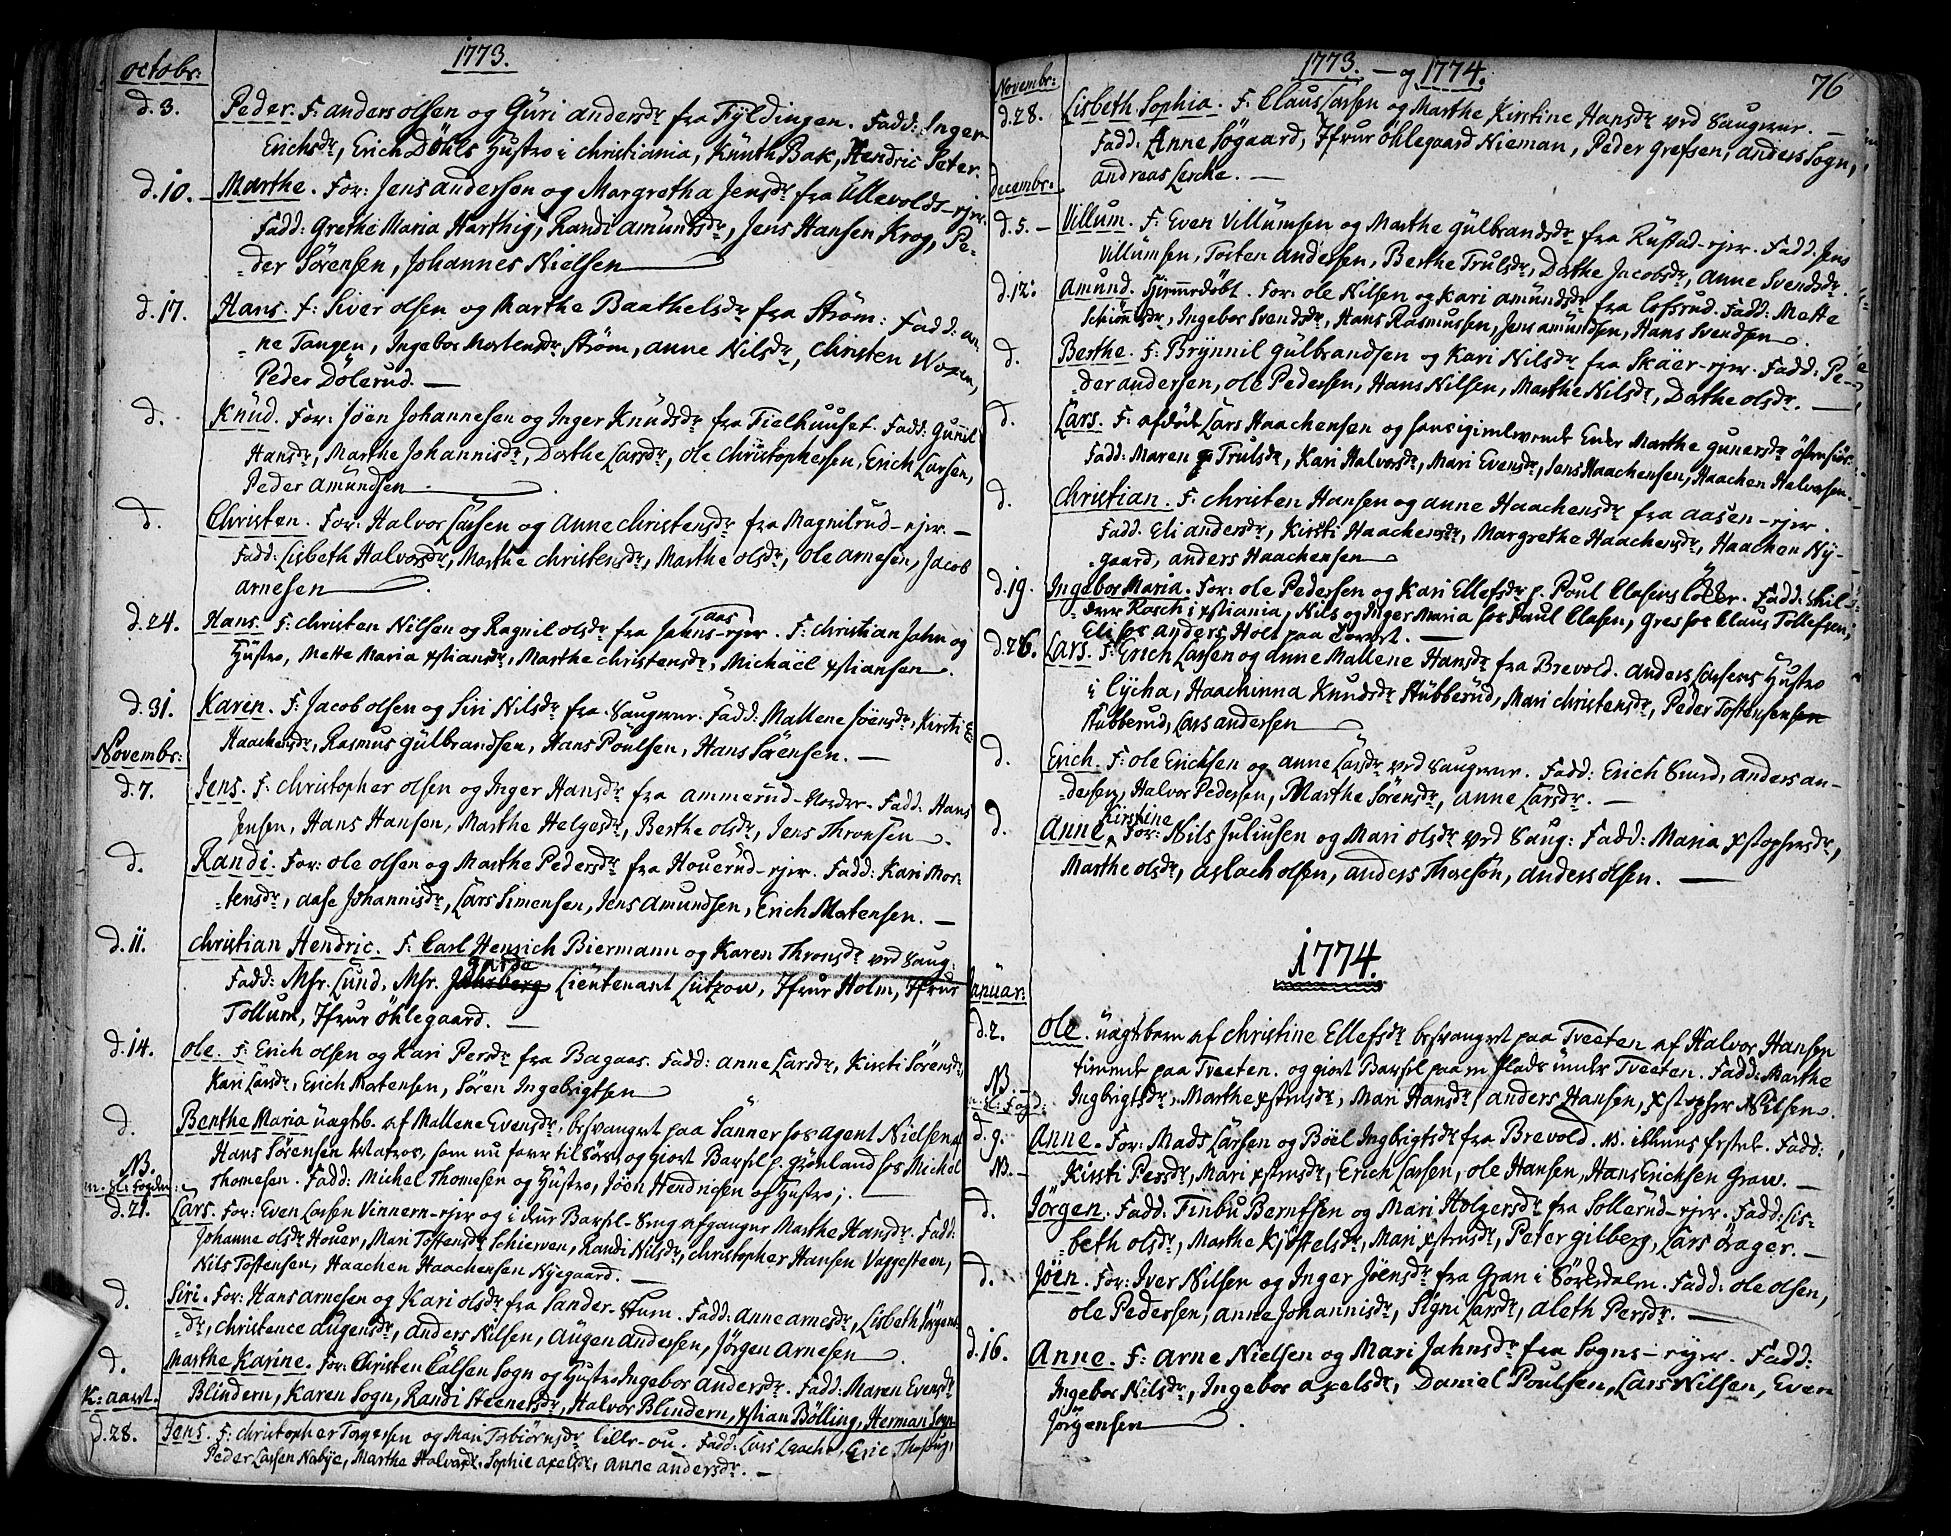 1773.
octobr:
d. 3. Peder. F: anders olsen og Güri andersdr fra Fyldingen. Fadd: Inger
Erichsdr, Erich Döhls Hustro i christiania, Knüth Bak, Hendric Peter.
d. 10. Marthe. For: Jens andersen og Margretha Jensdr fra Ullevolds-ejer.
Fadd: Grethe Maria Harthig, Randi amündsdr, Jens Hansen Krog, Pe-
der Sörensen, Johannes Nielsen
d. 17. Hans. F: Siver olsen og Marthe Baathelsdr fra Ström: Fadd: an-
ne Tangen, Ingebor Mortensdr Ström, anne Nilsdr, christen Woxen,
Peder Dölerud.
d. Knüd. For: Jöen Johannesen og Inger Knüdsdr fra Fielhuuset. Fadd: Gunil
Hansdr, Marthe Johannisdr, Dorthe Larsdr, ole christophersen, Erich Larsen,
Peder amündsen
d. Christen. For: Halvor Larsen og anne christensdr fra Magnilrud-ejer.
Fadd: Lisbeth Halvorsdr, Marthe christensdr, Marthe olsdr, ole arnesen, Jacob
arnesen
d. 24. Hans. F: christen Nilsen og Ragnil olsdr fra Jahns-ejer Aas. F: christian Jahn og
Hustro, Mette Maria xstiansdr, Marthe christensdr, Michaël xstiansen
d. 31. Karen. F: Jacob olsen og Siri Nilsdr fra Saugene. Fadd: Mallene Jöensdr, Kirsti
Haachensdr, Rasmus Gülbrandsen, Hans Poulsen, Hans Sörensen.
Novembr:
d. 7. Jens. F: christopher olsen og Inger Hansdr fra ammerud-Nordre. Fadd: Hans
Jensen, Hans Hansen, Marthe Helgesdr, Berthe olsdr, Jens Thronsen
d. Randi. For: ole olsen og Marthe Pedersdr fra Houerud-ejer. Fadd: Kari Mor-
tensdr, aase Johannisdr, Lars Simensen, Jens Amundsen, Erich Mortensen.
d. 11. christian Hendric. F: Carl Henrich Biermann og Karen Thronsdr ved Saug:
Fadd: Msr. Lund, Msr. Garde Lieutenant Lützow, Jfrue Holm, Jfrue
Tollum, Jfrue Öhlegaard.
d. 14. ole. F: Erich olsen og Kari Persdr fra Bagaas. Fadd: anne Larsdr, Kirsti Sörensdr,
Kari Larsdr, Erich Mortensen, Sören Ingebrigtsen
d. Benthe Maria uægtb. af Mallene Evensdr, besvangret paa Sanner hos agent Nielsen af
Hans Sörensen Matros, som nu farer til Söes, og giort Barsel p. Grönland hos Michel
NB. Thomesen. Fadd: Michel Thomesen og Hustro, Jöen Hendricsen og Hustro;
d. 21. Lars. For: Even Larsen Vinnern-ejer og i sin Barsel-Seng afgangne Marthe Hansdr. Fadd:
Johanne olsdr Houer, Mari Tostensdr Schierven, Randi Nilsdr, christopher Hansen Vaggesteen,
Nils Tostensen, Haachen Haachensen Nyegaard.
d. Siri. For: Hans arnesen og Kari olsdr fra Sander-Hum. Fadd: anne arnesdr, Lisbeth Jörgens-
dr, christence augensdr, anders Nilsen, Augen andersen, Jörgen Arnesen
d. Marthe Karine. For: Christen Calsen Sogn og Hustro Ingebor andersdr. Fadd: Maren Evensdr
K: aart. Blindern, Karen Sogn, Randi Heenetsdr, Halvor Blindern, xstian Bölling, Herman Sogn
d. 28. Jens. F: christopher Torgersen og Mari Torbiörnsdr Lille-ou. Fadd: Lars Leache, Eric Thostug,
Peder Larsen Nabye, Marthe Halvorsdr, Sophie axelsdr, anne andersdr.
1773. og 1774.
76
Novembr:
d. 28. Lisbeth Sophia. F: Claus Larsen og Marthe Kirstine Hansdr ved Saugene.
Fadd: Anne Sögaard, Jfrue Öhlegaard Nieman, Peder Grefsen, anders Sogn,
andreas Lerche.
Decembr:
d. 5. Villum. F: Even Villumsen og Marthe Gülbrandsdr fra Rustad-ejer. Fadd: Jens
Villümsen, Tosten Andersen, Berthe Trulsdr, Dorthe Jacobsdr, anne Svendsdr.
d. 12. amund. Hjemmedöbt. For: ole Nilsen og Kari amündsdr fra Lofsrud. Fadd: Mette
Schiönnsdr, Ingebor Svendsdr, Hans Rasmussen, Jens amundsen, Hans Svendsen
d. Berthe. F: Brynnil Gülbrandsen og Kari Nilsdr fra Skäer-ejer. Fadd: Pe-
der andersen, ole Pedersen, Hans Nilsen, Marthe Nilsdr, Dorthe olsdr.
d. Lars. F: afdöde Lars Haachensen og hans igienlevende Enke Marthe Gunersdr Östensiöe.
Fadd: Maren Trulsdr, Kari Halvorsdr, Mari Evensdr, Jens Haachensen, Haachen Halvorsen.
d. Christian. F: christen Hansen og anne Haachensdr fra Aasen-ejer.
Fadd: Eli andersdr, Kirsti Haachensdr, Margrethe Haachensdr, Haachen Ny-
gaard, anders Haachensen
d. 19. Ingebor Maria. For: ole Pedersen og Kari Ellefsdr p. Poul Clasens Löcke. Fadd: Skil-
dere Rasch i xstiania, Nils og Inger Maria hos Paul Clasen, Gres hos Claus Tollefsen,
Eli hos Anders Holt paa Torvet.
d. 26. Lars. F: Erich Larsen og anne Mallene Hansdr fra Brevold. anders Larsens Hustro
i Lycha, Haachinna Knudsdr Stübberüd, Mari christensdr, Peder Tostensen
Stubberud, Lars andersen
d. Erich. F: ole Ericksen og anne Larsdr ved Saugene. Fadd: Erich Sund, anders an-
dersen, Halvor Pedersen, Marthe Sörensdr, anne Larsdr.
d. Anne Kirstine. For: Nils Juliusen og Mari olsdr ved Saug: Fadd: Maria xstophersdr,
Marthe olsdr, aslach olsen, anders Thoresön, anders olsen.
1774.
Januar:
d. 2. ole. uægtbarn af christine Ellefsdr besvangret paa Tveeten af Halvor Hansen
NB. tienende paa Tveeten. og giort Barsel paa en Plads under Tveeten. Fadd: Marthe
Ingbrigtsdr, Marthe xstensdr, Mari Hansdr, anders Hansen, xstopher Nilsen.
d. 9. Anne. For: Mads Larsen og Böel Ingbrigtsdr fra Brevold. Fadd:
NB. Kirsti Persdr, Mari xstensdr, Erich Larsen, ole Hansen, Hans Erichsen Graw.
d. Jörgen. Fadd: Tinbu Berntsen og Mari Holgersdr fra Sollerud-ejer. Fadd: Lis-
beth olsdr, Marthe Kjöstelsdr, Mari xstensdr, Peter Gilberg, Lars örager.
d. Jöen. For: Iver Nilsen og Inger Jöensdr fra Gran i Sörkedalen. Fadd: ole olsen,
ole Pedersen, anne Johannisdr, Signi Larsdr, aleth Persdr.
d. 16. Anne. F: arne Nielsen og Mari Jahnsdr fra Sogns-ejer. Fadd:
Ingebor Nilsdr, Ingebor axelsdr, Daniel Poulsen, Lars Nilsen, Even
Jörgensen